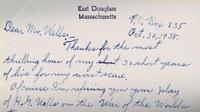 East Douglass
Massachusetts
P.O. Box 835
Oct. 30, 1938.
Dear Mr. Wells:
Thanks for the most
thrilling hour of my 30 short years
of life for my wits were.
Of course I'm referring to your play
of H.G. Wells on the War of the Worlds